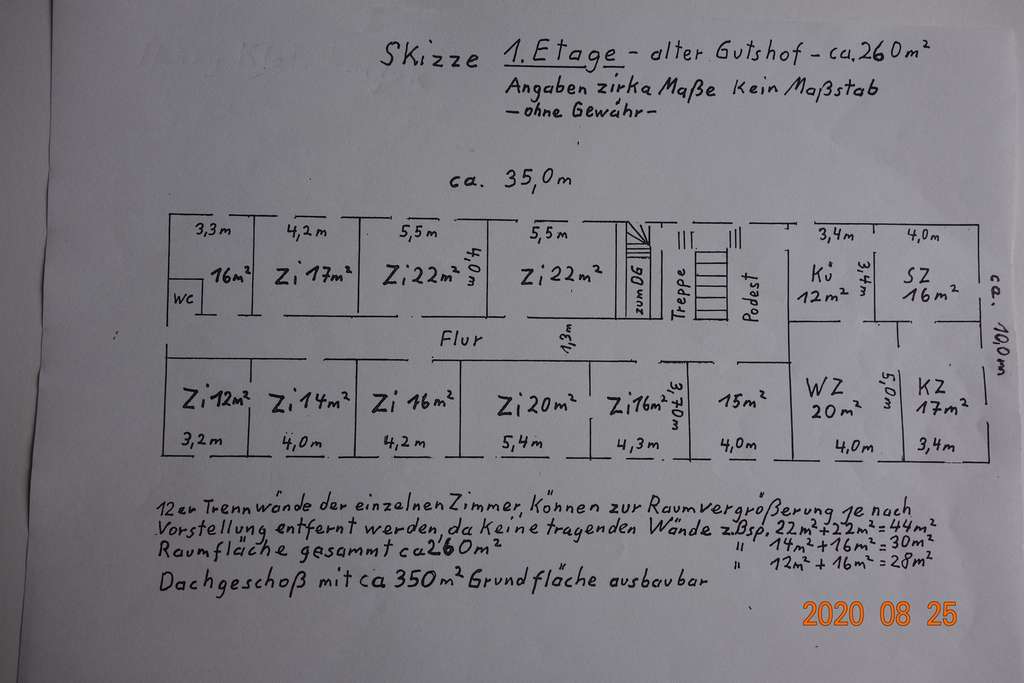 Skizze 1. Etage - alter Gutshof - ca. 260m²
Angaben zirka Maße Kein Maßstab
- ohne Gewähr -
ca. 35,0m
3,3m 4,2m 5,5m 5,5m 3,4m 4,0m
16m² Zi 17m² Zi 22m² 4,0m Zi 22m² zum DG Treppe Podest Kü 12m² 3,4m SZ 16m²
WC
ca. 10,0m
Flur 1,3m
Zi 12m² Zi 14m² Zi 16m² Zi 20m² Zi 16m² 3,70m 15m² WZ 20m² 5,0m KZ 17m²
3,2m 4,0m 4,2m 5,4m 4,3m 4,0m 4,0m 3,4m
12er Trennwände der einzelnen Zimmer, Können zur Raumvergrößerung je nach
Vorstellung entfernt werden, da Keine tragenden Wände z.Bsp. 22m²+22m²=44m²
Raumfläche gesammt ca 260m² " 14m²+16m²=30m²
" 12m²+16m²=28m²
Dachgeschoß mit ca 350m² Grundfläche ausbaubar
2020 08 25